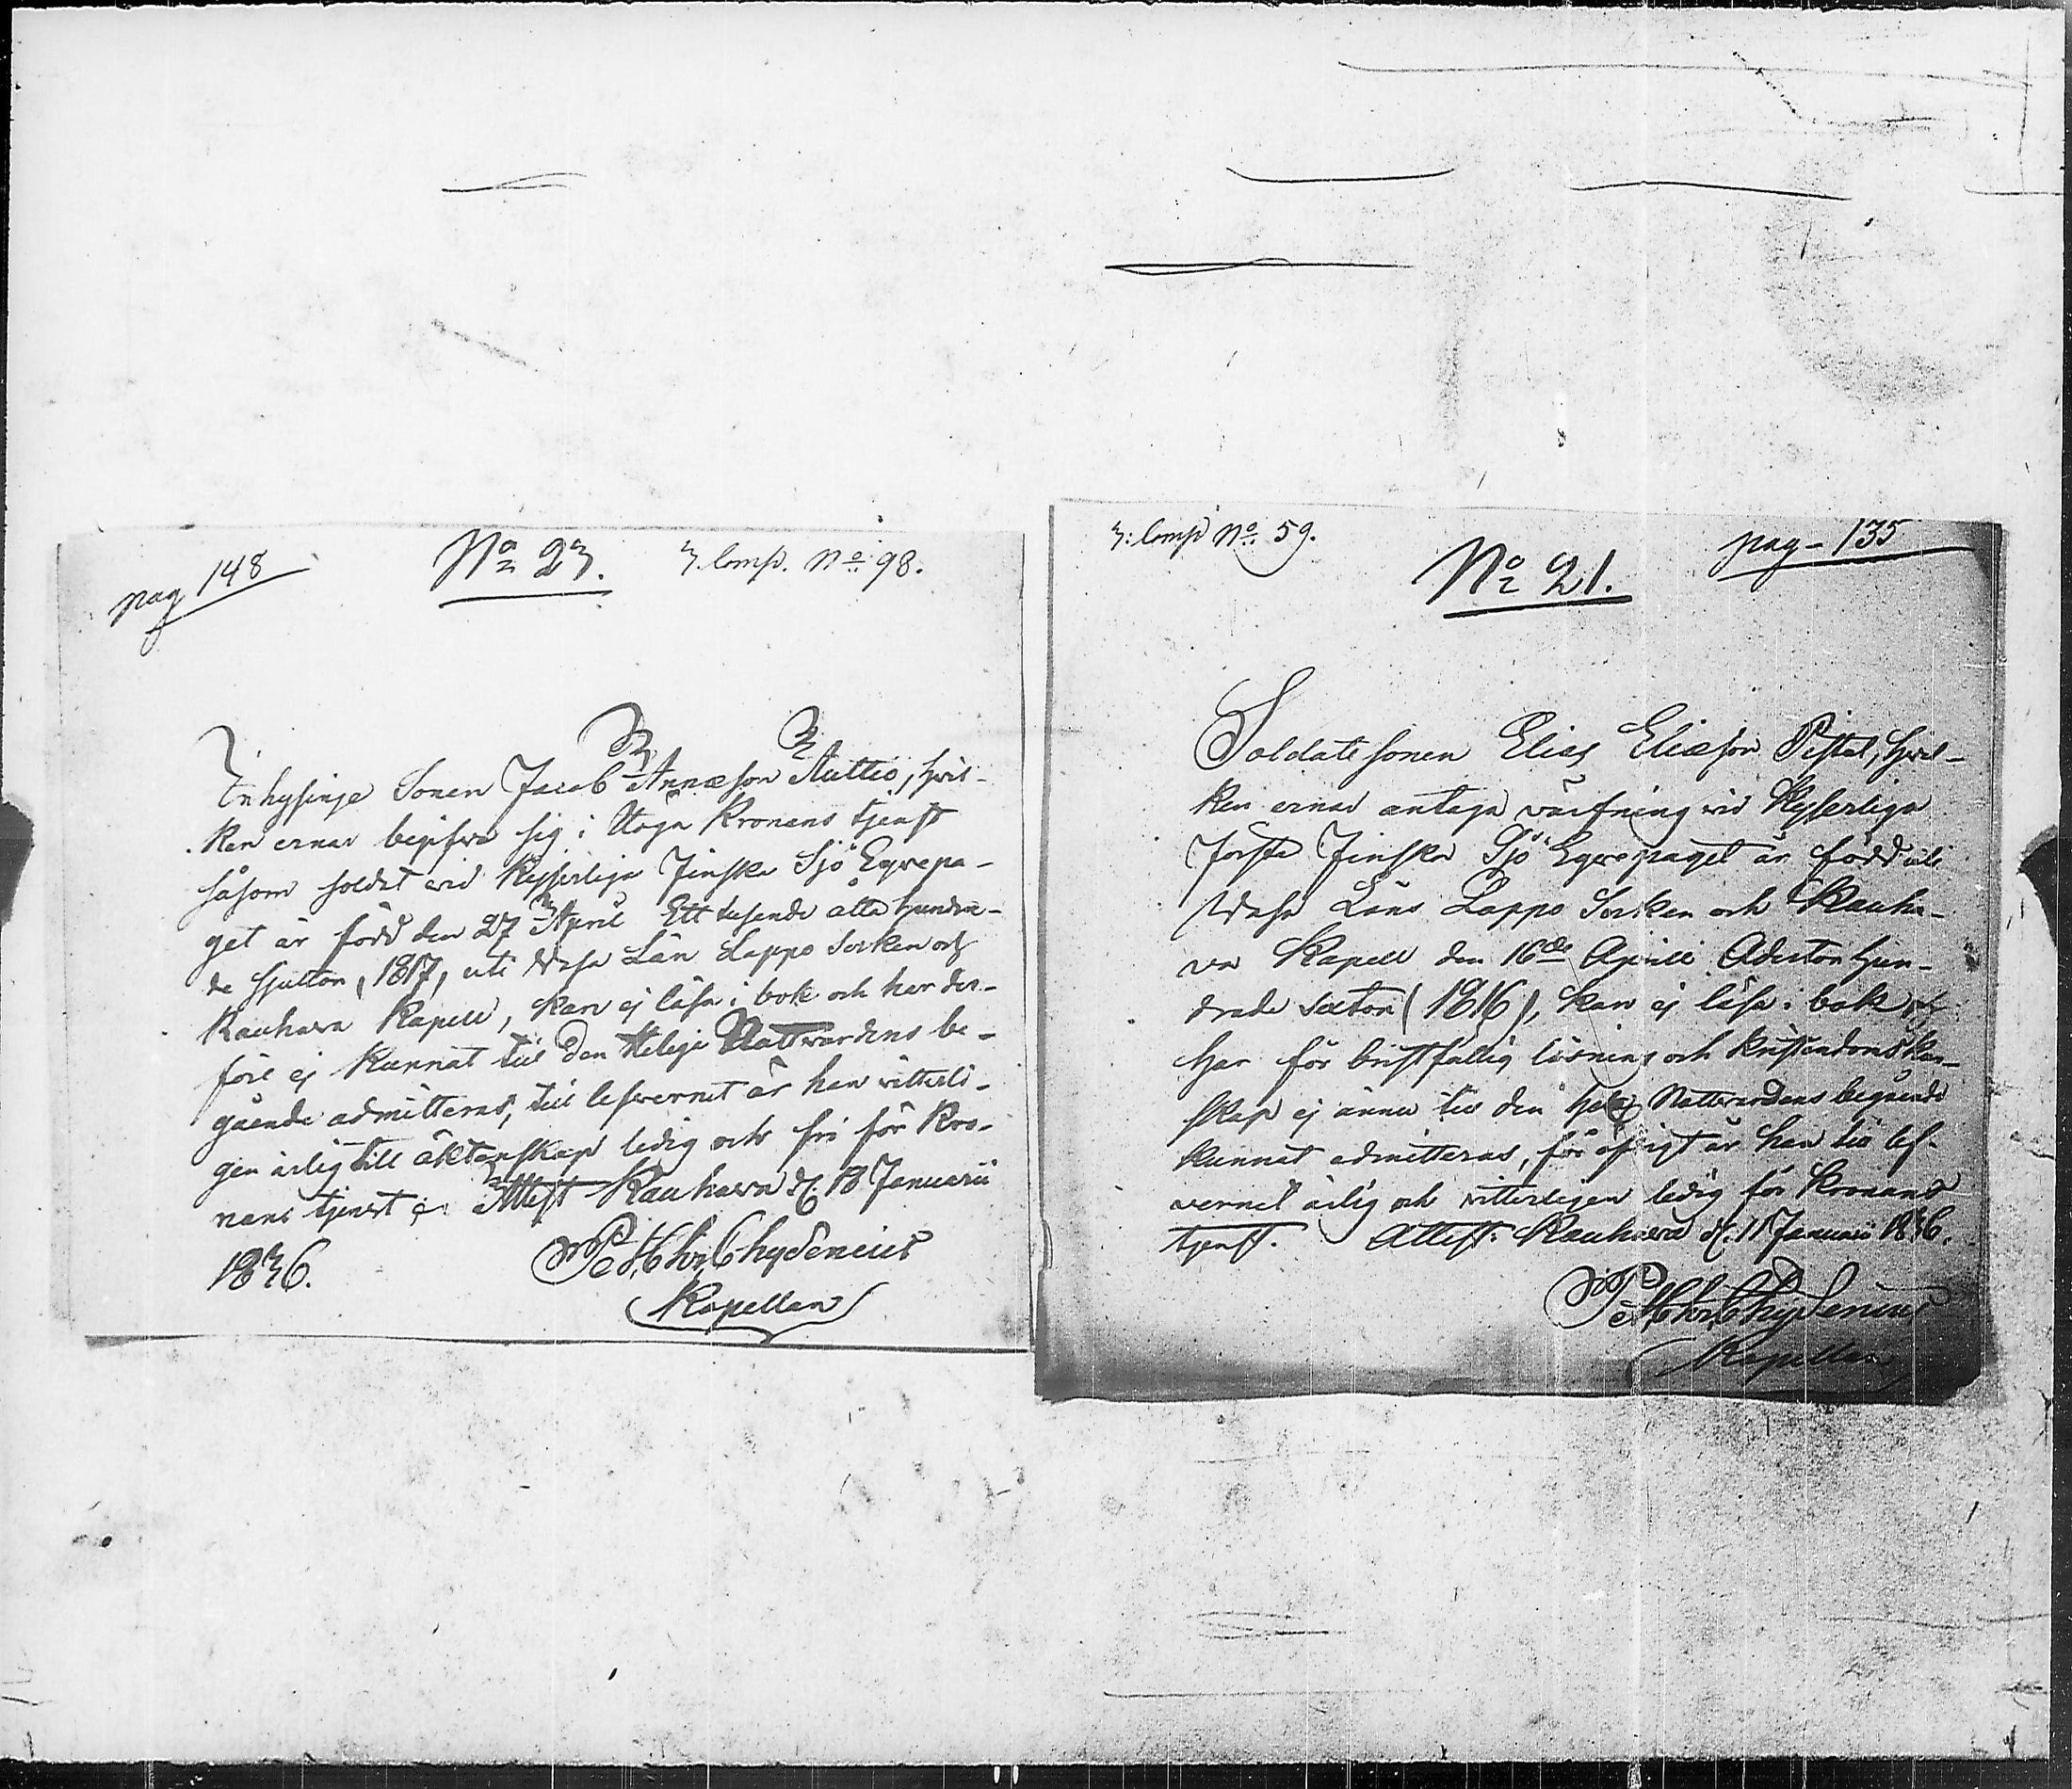 pag 148
No 23.
3. Comp. No 98.
Inhysinge Sonen Jacob Annæson Auttio, hvil-
ken ernar begifva sig i Höga Kronans tjenst
såsom soldat vid Kejserliga Finska Sjö Eqvepa-
get är född den 27 April Ett tusende åtta hundra-
de sjutton, 1817, uti Wasa Län Lappo Socken och
Kauhava Kapell, kan ej läsa i bok och har der-
före ej kunnat till den Heliga Nattvardens be-
gående admitteras, till lefvernet är han vitterli-
gen ärlig till äktenskap ledig och fri för Kro-
nans tjenst Attest. Kauhava d. 18 Januarii
1836.
Pet. Chr. Chydenius
Kapellan
3: Comp No 59.
No 21.
pag- 135
Soldatesonen Elias Eliæson Pistol, hvil-
ken ernar antaga värfning vid Kejserliga
Första Finska Sjö Eqvepaget är född uti
Wasa Läns Lappo Socken och Kauha-
va Kapell den 16de Aprill Aderton hun-
drade sexton (1816), kan ej läsa i bok och
har för bristfällig läsning och kristendoms kun-
skap ej ännu till den Helg Nattvardens begående
kunnat admitteras, för öfrigt är han till lef-
vernet ärlig och vitterligen ledig för Kronans
tjenst. Attest. Kauhava d. 11 Januarii 1836.
Pet. Chr. Chydenius
Kapellan